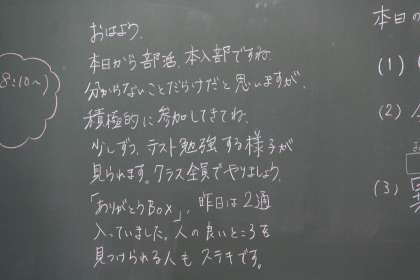 8:10~)
おはよう。
本日から部活、本入部ですね。
分からないことだらけだと思いますが、
積極的に参加してきてね。
少しずつ、テスト勉強する様子が
見られます。クラス全員でやりましょう。
「ありがとうBOX」、昨日は2通
入っていました。人の良いところを
見つけられる人もステキです。
本日の
(1)
(2)
(3)